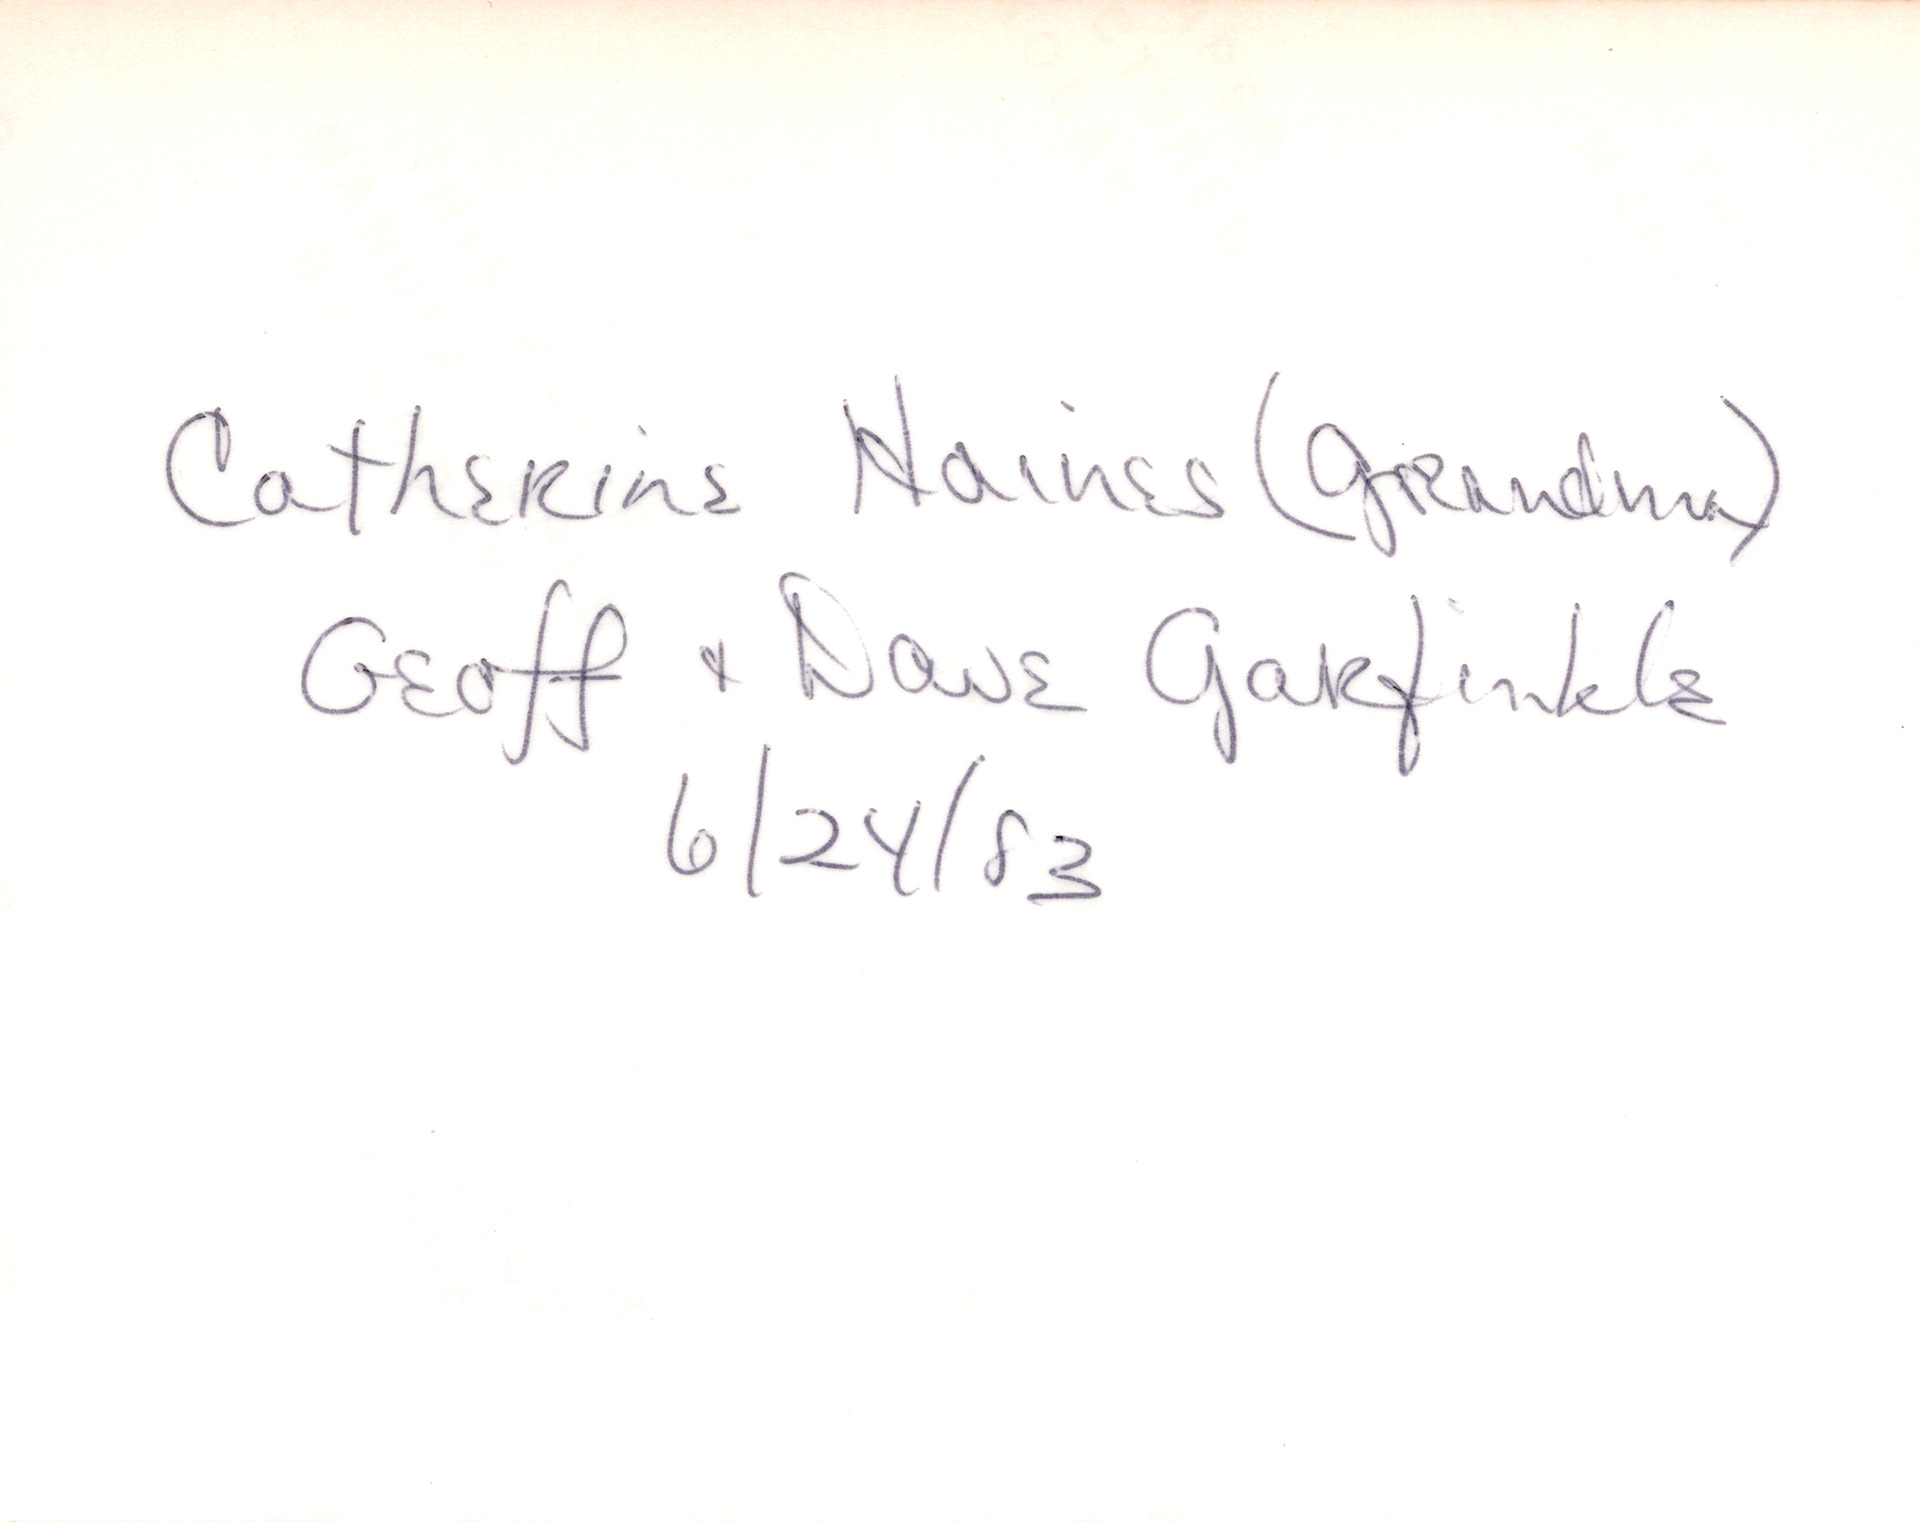 Catherine Haines (Grandma)
Geoff & Dave Garfinkle
6/24/83